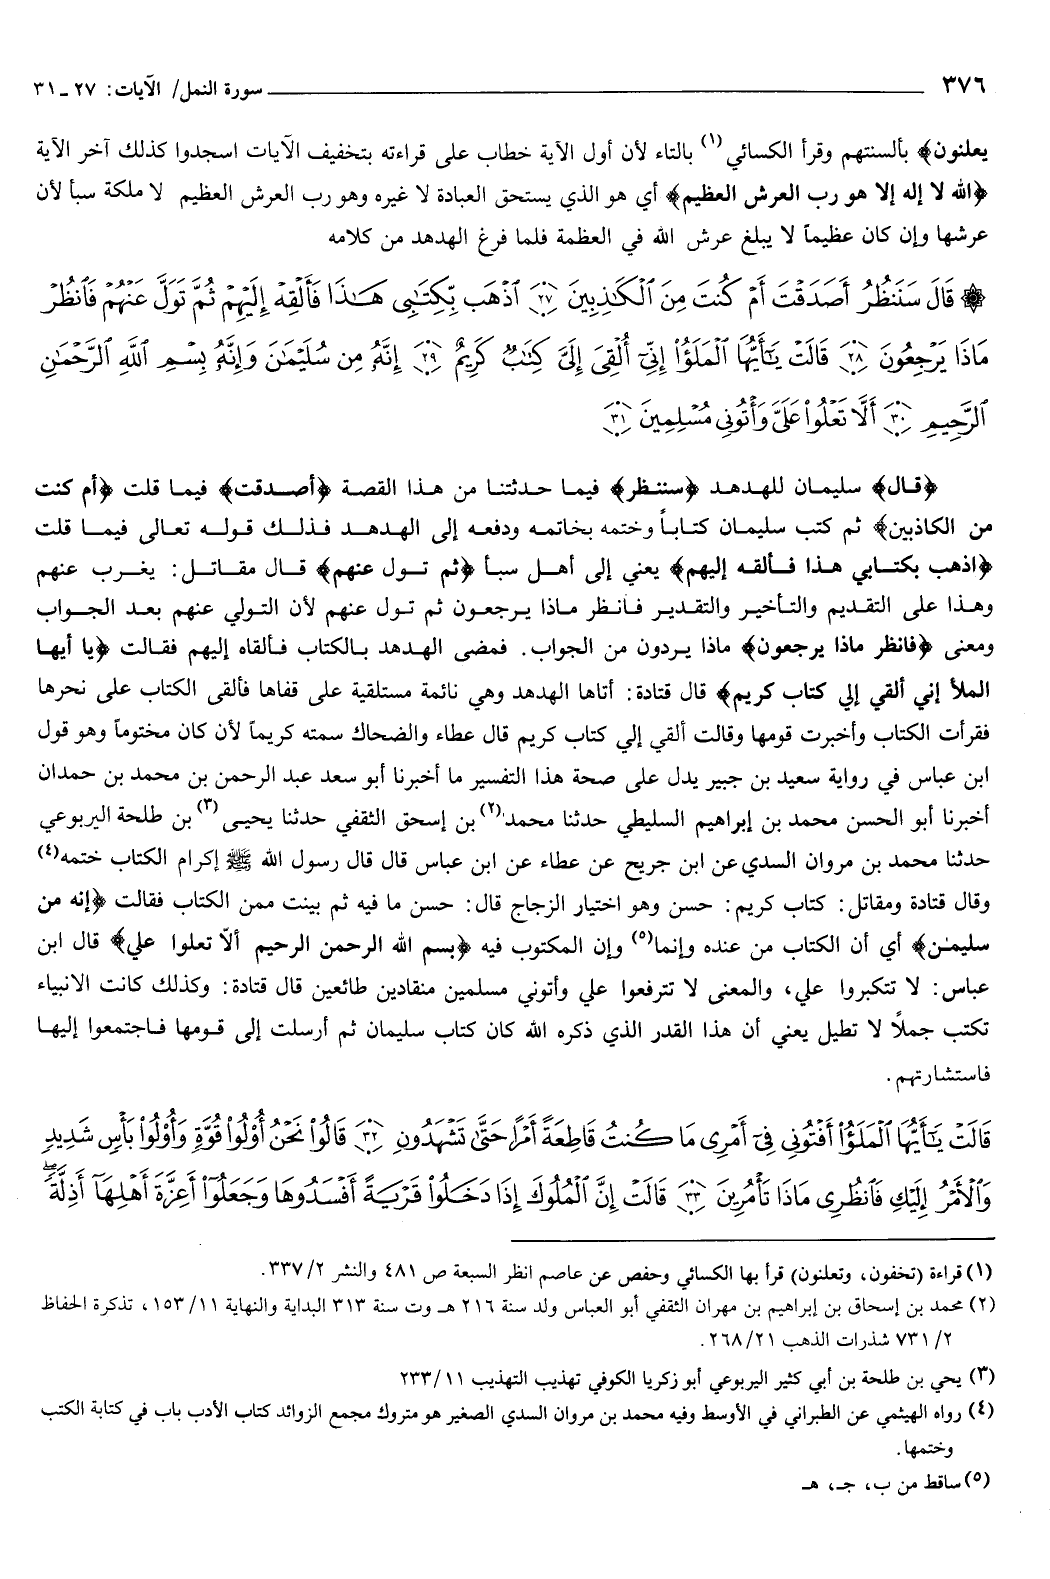 ٣٧٦ ـــــــــــــــــ سورة النمل/ الآيات: ٢٧ ـ ٣١
يعلنون﴾ بألسنتهم وقرأ الكسائي(١) بالتاء لأن أول الآية خطاب على قراءته بتخفيف الآيات اسجدوا كذلك آخر الآية
﴿الله لا إله إلا هو رب العرش العظيم﴾ أي هو الذي يستحق العبادة لا غيره وهو رب العرش العظيم لا ملكة سبأ لأن
عرشها وإن كان عظيماً لا يبلغ عرش الله في العظمة فلما فرغ الهدهد من كلامه
۞ قَالَ سَنَنظُرُ أَصَدَقْتَ أَمْ كُنتَ مِنَ ٱلْكَٰذِبِينَ ﴿٢٧﴾ ٱذْهَب بِّكِتَٰبِى هَٰذَا فَأَلْقِهْ إِلَيْهِمْ ثُمَّ تَوَلَّ عَنْهُمْ فَٱنظُرْ
مَاذَا يَرْجِعُونَ ﴿٢٨﴾ قَالَتْ يَٰٓأَيُّهَا ٱلْمَلَؤُا۟ إِنِّىٓ أُلْقِىَ إِلَىَّ كِتَٰبٌ كَرِيمٌ ﴿٢٩﴾ إِنَّهُۥ مِن سُلَيْمَٰنَ وَإِنَّهُۥ بِسْمِ ٱللَّهِ ٱلرَّحْمَٰنِ
ٱلرَّحِيمِ ﴿٣٠﴾ أَلَّا تَعْلُوا۟ عَلَىَّ وَأْتُونِى مُسْلِمِينَ ﴿٣١﴾
﴿قال﴾ سليمان للهدهد ﴿سننظر﴾ فيما حدثتنا من هذا القصة ﴿أصدقت﴾ فيما قلت ﴿أم كنت
من الكاذبين﴾ ثم كتب سليمان كتاباً وختمه بخاتمه ودفعه إلى الهدهد فذلك قوله تعالى فيما قلت
﴿اذهب بكتابي هذا فألقه إليهم﴾ يعني إلى أهل سبأ ﴿ثم تول عنهم﴾ قال مقاتل: يغرب عنهم
وهذا على التقديم والتأخير والتقدير فانظر ماذا يرجعون ثم تول عنهم لأن التولي عنهم بعد الجواب
ومعنى ﴿فانظر ماذا يرجعون﴾ ماذا يردون من الجواب. فمضى الهدهد بالكتاب فألقاه إليهم فقالت ﴿يا أيها
الملأ إني ألقي إلي كتاب كريم﴾ قال قتادة: أتاها الهدهد وهي نائمة مستلقية على قفاها فألقى الكتاب على نحرها
فقرأت الكتاب وأخبرت قومها وقالت ألقي إلي كتاب كريم قال عطاء والضحاك سمته كريماً لأن كان مختوماً وهو قول
ابن عباس في رواية سعيد بن جبير يدل على صحة هذا التفسير ما أخبرنا أبو سعد عبد الرحمن بن محمد بن حمدان
أخبرنا أبو الحسن محمد بن إبراهيم السليطي حدثنا محمد(٢) بن إسحق الثقفي حدثنا يحيى(٣) بن طلحة اليربوعي
حدثنا محمد بن مروان السدي عن ابن جريج عن عطاء عن ابن عباس قال قال رسول الله ﷺ إكرام الكتاب ختمه(٤)
وقال قتادة ومقاتل: كتاب كريم: حسن وهو اختيار الزجاج قال: حسن ما فيه ثم بينت ممن الكتاب فقالت ﴿إنه من
سليمٰن﴾ أي أن الكتاب من عنده وإنما(٥) وإن المكتوب فيه ﴿بسم الله الرحمن الرحيم ألاّ تعلوا علي﴾ قال ابن
عباس: لا تتكبروا علي، والمعنى لا تترفعوا علي وأتوني مسلمين منقادين طائعين قال قتادة: وكذلك كانت الانبياء
تكتب جملاً لا تطيل يعني أن هذا القدر الذي ذكره الله كان كتاب سليمان ثم أرسلت إلى قومها فاجتمعوا إليها
فاستشارتهم.
قَالَتْ يَٰٓأَيُّهَا ٱلْمَلَؤُا۟ أَفْتُونِى فِىٓ أَمْرِى مَا كُنتُ قَاطِعَةً أَمْرًا حَتَّىٰ تَشْهَدُونِ ﴿٣٢﴾ قَالُوا۟ نَحْنُ أُو۟لُوا۟ قُوَّةٍ وَأُو۟لُوا۟ بَأْسٍ شَدِيدٍ
وَٱلْأَمْرُ إِلَيْكِ فَٱنظُرِى مَاذَا تَأْمُرِينَ ﴿٣٣﴾ قَالَتْ إِنَّ ٱلْمُلُوكَ إِذَا دَخَلُوا۟ قَرْيَةً أَفْسَدُوهَا وَجَعَلُوٓا۟ أَعِزَّةَ أَهْلِهَآ أَذِلَّةً ۖ
(١) قراءة (تخفون، وتعلنون) قرأ بها الكسائي وحفص عن عاصم انظر السبعة ص ٤٨١ والنشر ٣٣٧/٢.
(٢) محمد بن إسحاق بن إبراهيم بن مهران الثقفي أبو العباس ولد سنة ٢١٦ هـ وت سنة ٣١٣ البداية والنهاية ١٥٣/١١، تذكرة الحفاظ
٧٣١/٢ شذرات الذهب ٢٦٨/٢١.
(٣) يحي بن طلحة بن أبي كثير اليربوعي أبو زكريا الكوفي تهذيب التهذيب ٢٣٣/١١
(٤) رواه الهيثمي عن الطبراني في الأوسط وفيه محمد بن مروان السدي الصغير هو متروك مجمع الزوائد كتاب الأدب باب في كتابة الكتب
وختمها.
(٥) ساقط من ب، جـ، هـ